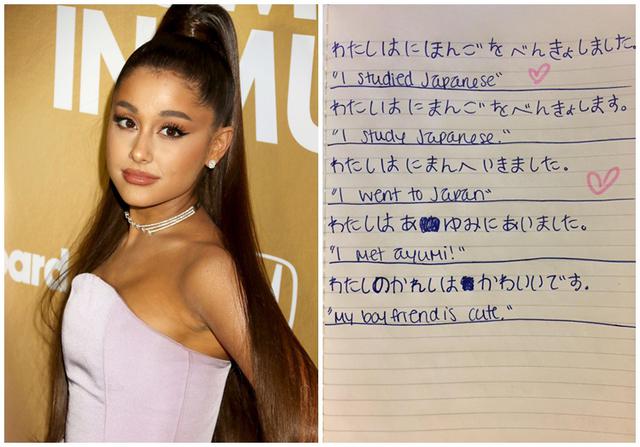 IN MU
oard
わたしはにほんごをべんきょしました。
"I studied Japanese"
わたしはにまんごをべんきょします。
"I study Japanese."
わたしはにまんへいきました。
"I went to Japan"
わたしはあゆみにあいました。
"I met ayumi!"
わたしのかれしはかわいいです.
"My boyfriend is cute."